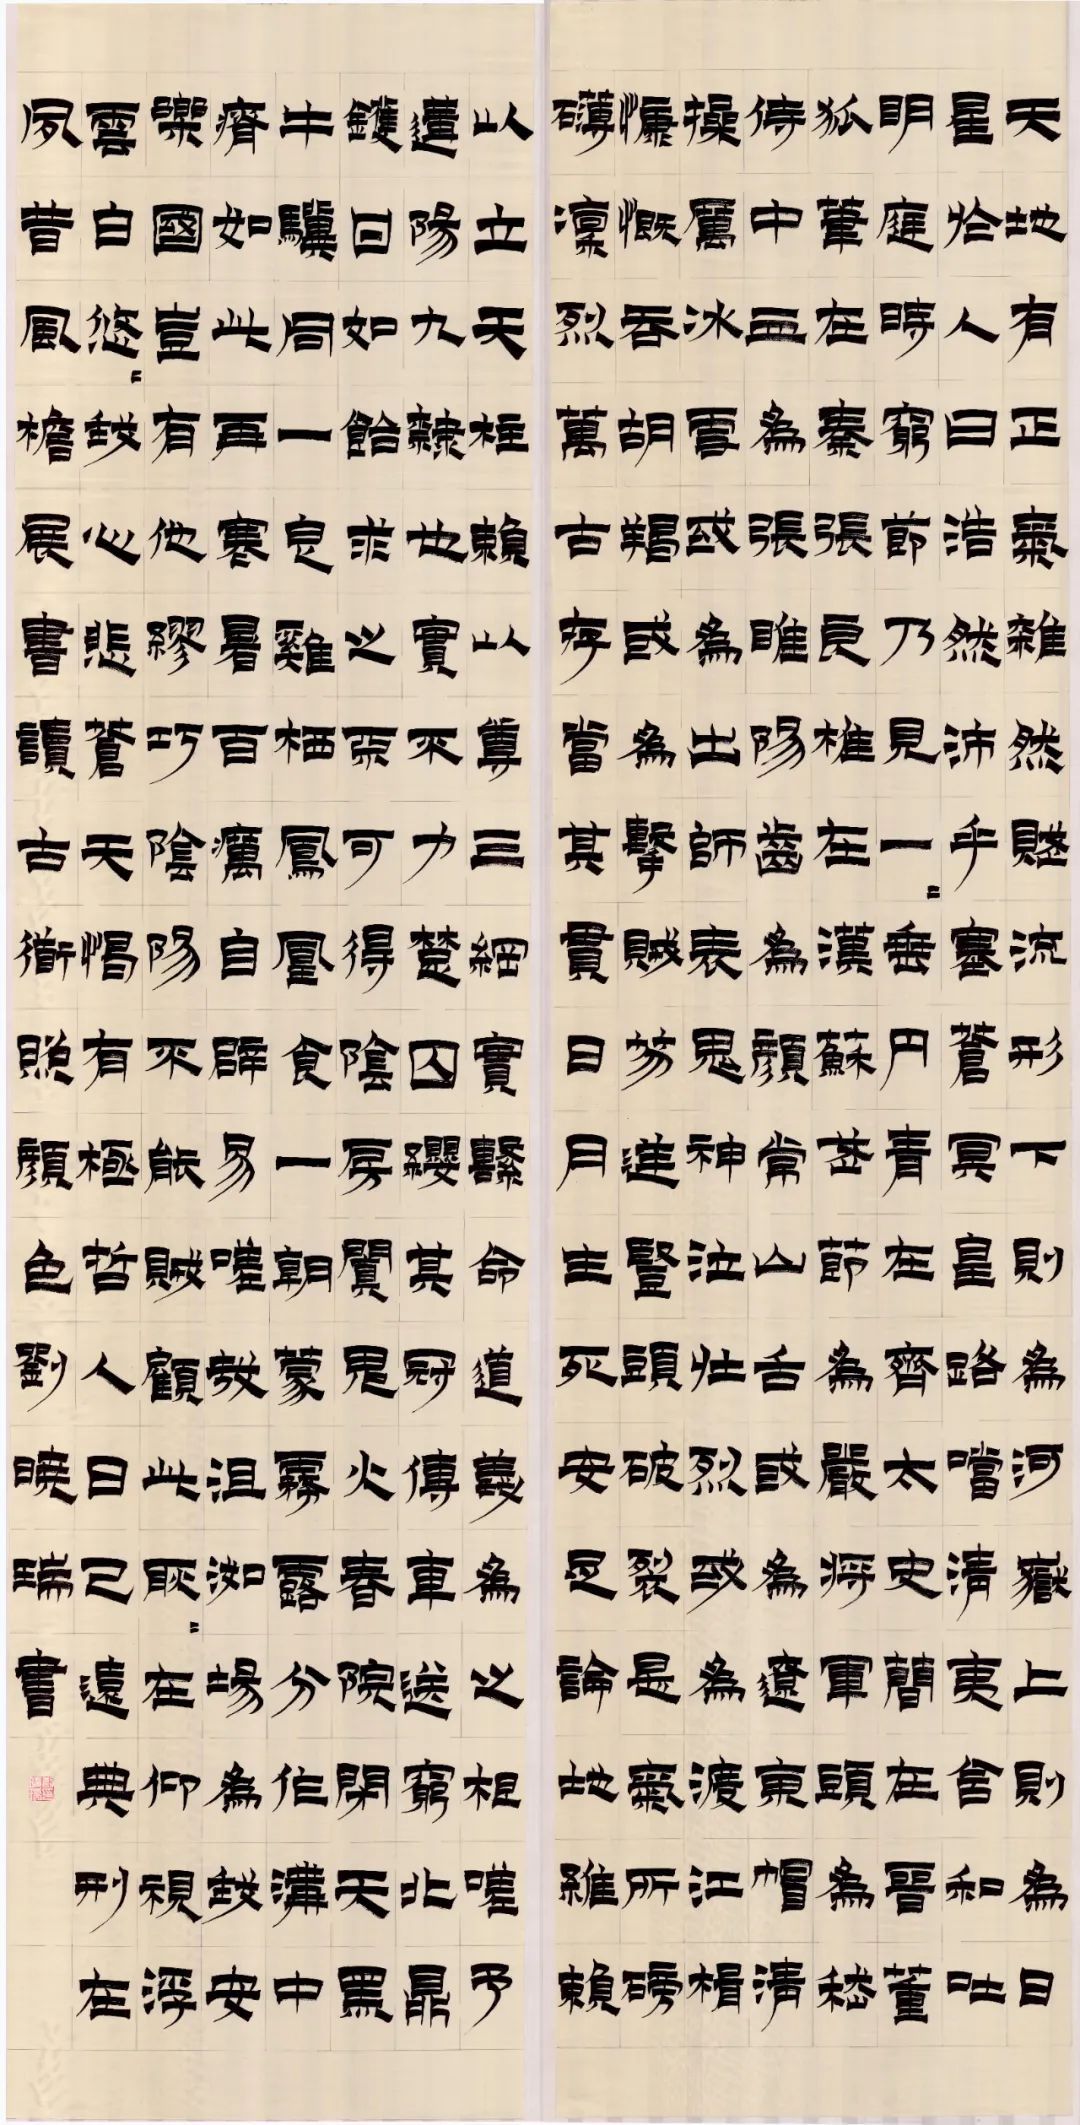 天地有正氣雜然賦流形下則為河嶽上則為日
星於人曰浩然沛乎塞蒼冥皇路噹清夷含和吐
明庭時窮節乃見一〻垂丹青在齊太史簡在晉董
狐筆在秦張良椎在漢蘇武節為嚴將軍頭為嵇
侍中血為張睢陽齒為顏常山舌或為遼東帽清
操厲冰雪或為出師表鬼神泣壯烈或為渡江楫
慷慨吞胡羯或為擊賊笏逆豎頭破裂是氣所磅
礴凜烈萬古存當其貫日月生死安足論地維賴
以立天柱賴以尊三綱實繫命道義為之根嗟予
遘陽九隸也實不力楚囚纓其冠傳車送窮北鼎
鑊甘如飴求之不可得陰房闃鬼火春院閟天黑
牛驥同一皂雞栖鳳凰食一朝蒙霧露分作溝中
瘠如此再寒暑百癘自辟易嗟哉沮洳場為我安
樂國豈有他繆巧陰陽不能賊顧此耿〻在仰視浮
雲白悠〻我心悲蒼天曷有極哲人日已遠典刑在
夙昔風檐展書讀古道照顏色劉曉瑞書